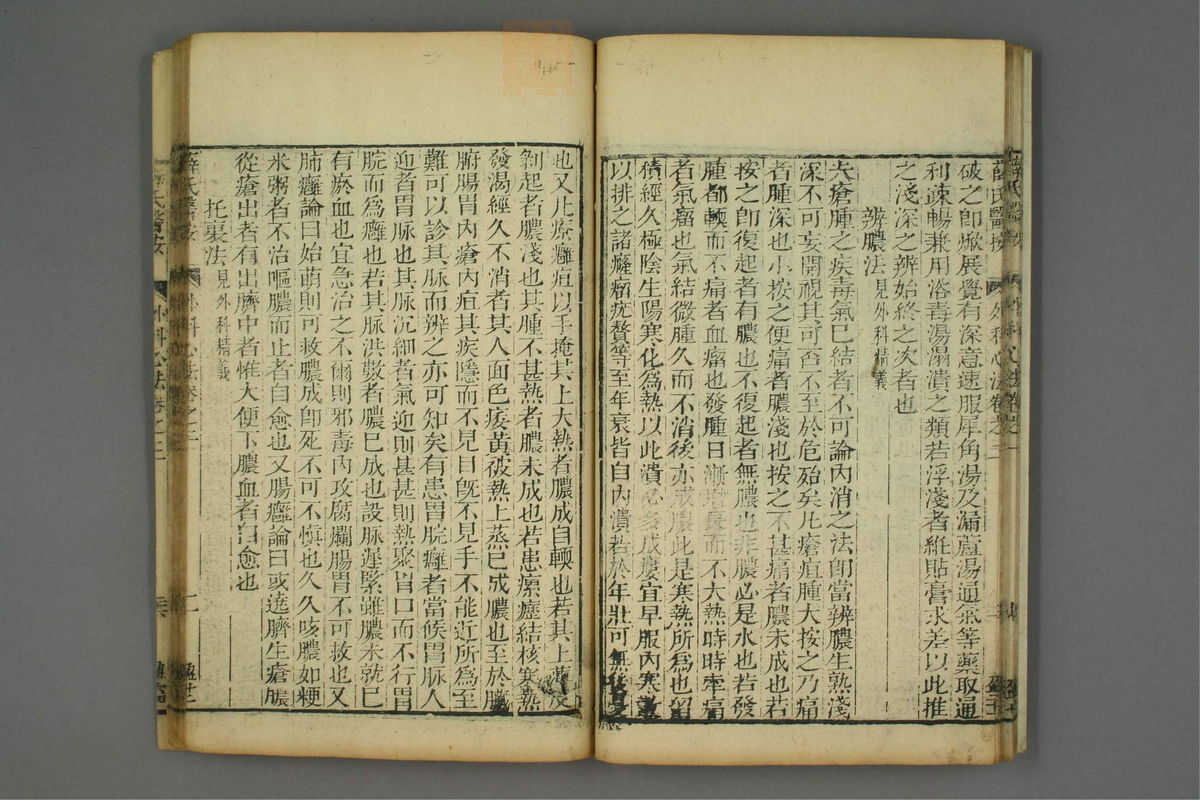 薛氏醫按
外科心法卷之二
破之即㶼展覺有深意速服犀角湯及漏蘆湯通氣等藥取通
利疎暢兼用浴毒湯溻漬之類若浮淺者維貼膏求差以此推
之淺深之辨始終之次者也
辨膿法見外科精義
夫瘡腫之疾毒氣已結者不可論內消之法即當辨膿生熟淺
深不可妄開視其可否不至於危殆矣凡瘡疽腫大按之乃痛
者膿深也小按之便痛者膿淺也按之不甚痛者膿未成也若
按之即復起者有膿也不復起者無膿也非膿必是水也若發
腫都輭而不痛者血瘤也發腫日漸增長而不大熱時時牽痛
者氣瘤也氣結微腫久而不消後亦成膿此是寒熱所為也留
積經久極陰生陽寒化爲熱以此潰必多成瘻宜早服內寒散
以排之諸癰瘤疣贅等至年衰皆自內潰若於年壯可無
也又凡療癰疽以手掩其上大熱者膿成自輭也若其上薄皮
剝起者膿淺也其腫不甚熱者膿未成也若患瘰癧結核寒熱
發渴經久不消者其人面色痿黃被熱上蒸已成膿也至於臟
腑腸胃內瘡內疽其疾隱而不見目旣不見手不能近所為至
難可以診其脉而辨之亦可知矣有患胃脘癰者當候胃脉人
迎者胃脉也其脉沉細者氣迎則甚甚則熱聚胃口而不行胃
脘而爲癰也若其脉洪數者膿已成也設脉遲緊雖膿未就已
有瘀血也宜急治之不爾則邪毒內攻腐爛腸胃不可救也又
肺癰論曰始萌則可救膿成卽死不可不慎也久久咳膿如粳
米粥者不治嘔膿而止者自愈也又腸癰論曰或遶臍生瘡膿
從瘡出者有出臍中者惟大便下膿血者自愈也
托裏法見外科精義
薛氏醫按
外科心法卷之二